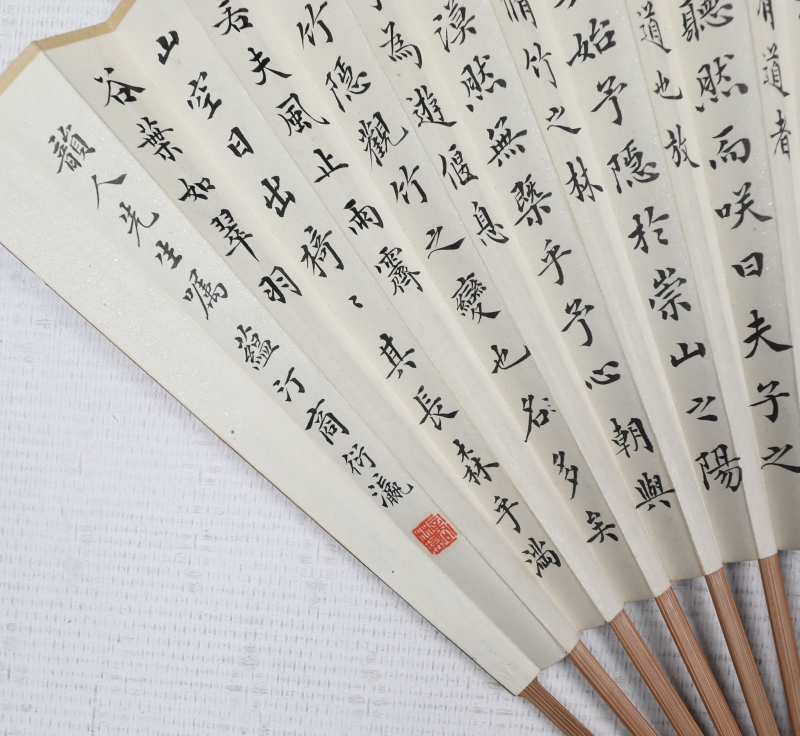 有道者
聽然而咲曰夫子之
道也放
始予隱於崇山之陽
竹之林
漠然無槩乎予心朝與
為遊偃息
竹隱觀竹之變也名多矣
若夫風止雨霽
山空日出猗〻其長森乎滿
谷葉如翠羽
韻人先生囑 蘊汀商衍瀛